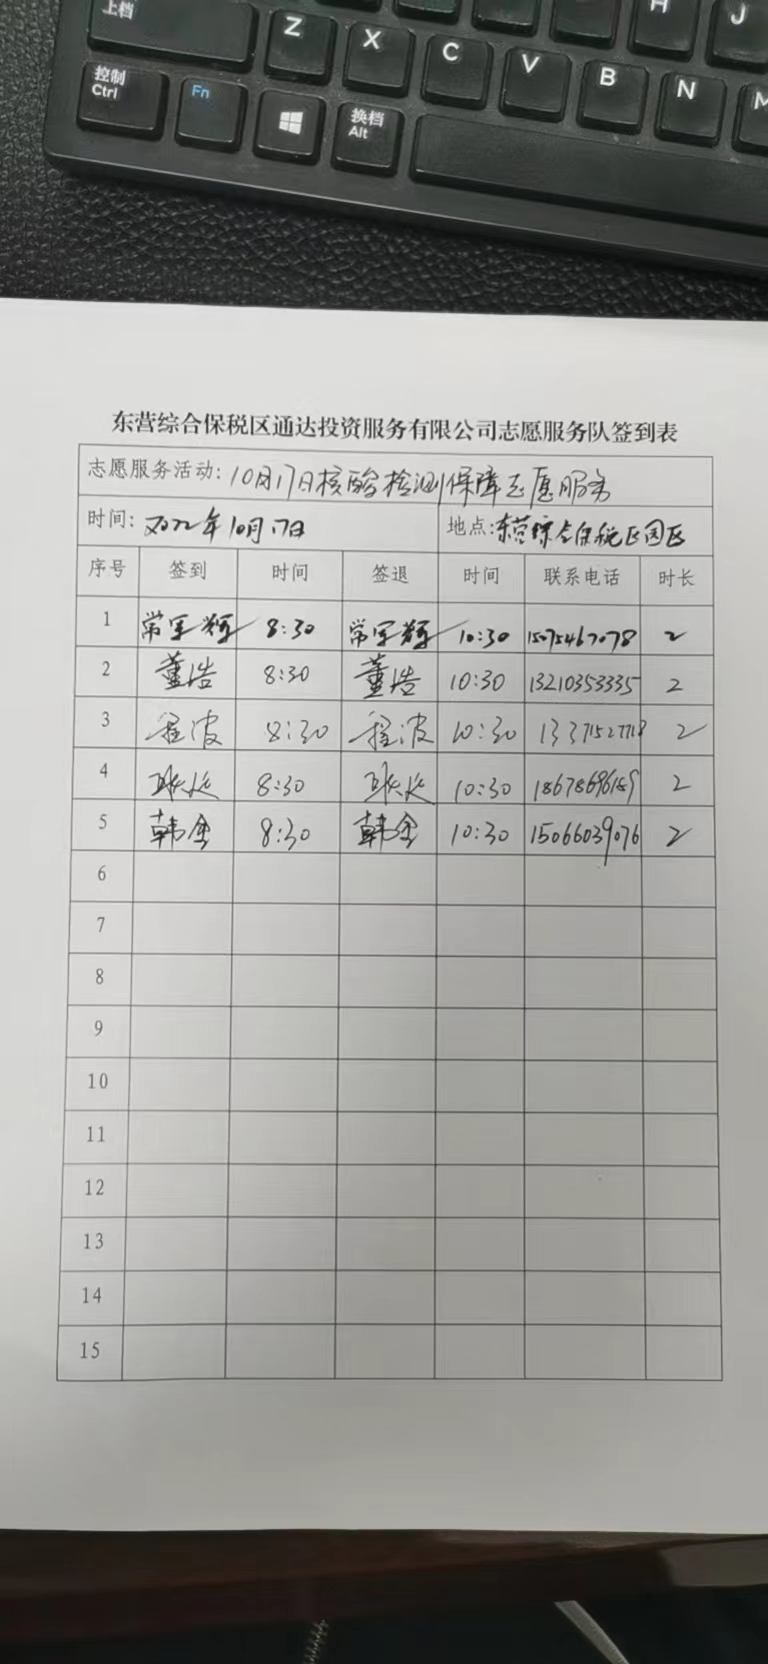 上档 Z X C V B N M H J
控制 Ctrl Fn 换档 Alt
东营综合保税区通达投资服务有限公司志愿服务队签到表
志愿服务活动：10月17日核酸检测保障志愿服务
时间：2022年10月17日 地点：东营综合保税区园区
序号 签到 时间 签退 时间 联系电话 时长
1 8:30 10:30 15075467078 2
2 董浩 8:30 董浩 10:30 13210353335 2
3 程波 8:30 程波 10:30 13371527718 2
4 8:30 10:30 18678696189 2
5 韩金 8:30 韩金 10:30 15066039076 2
6
7
8
9
10
11
12
13
14
15